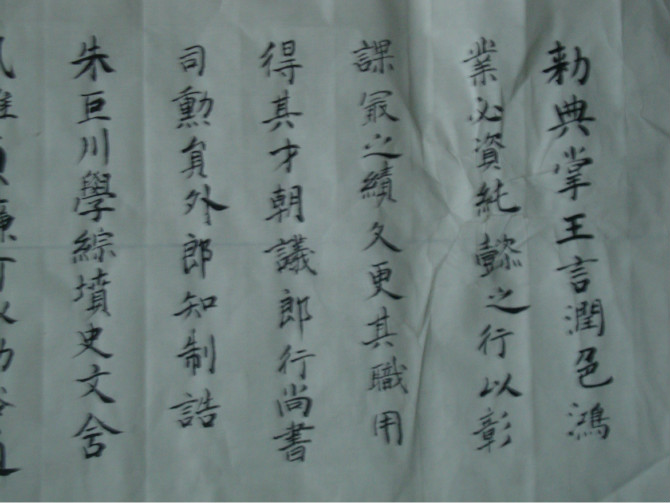 勅典掌王言潤色鴻
業必資純懿之行以彰
課冣之績久更其職用
得其才朝議郎行尚書
司勳員外郎知制誥
朱巨川學綜墳史文含